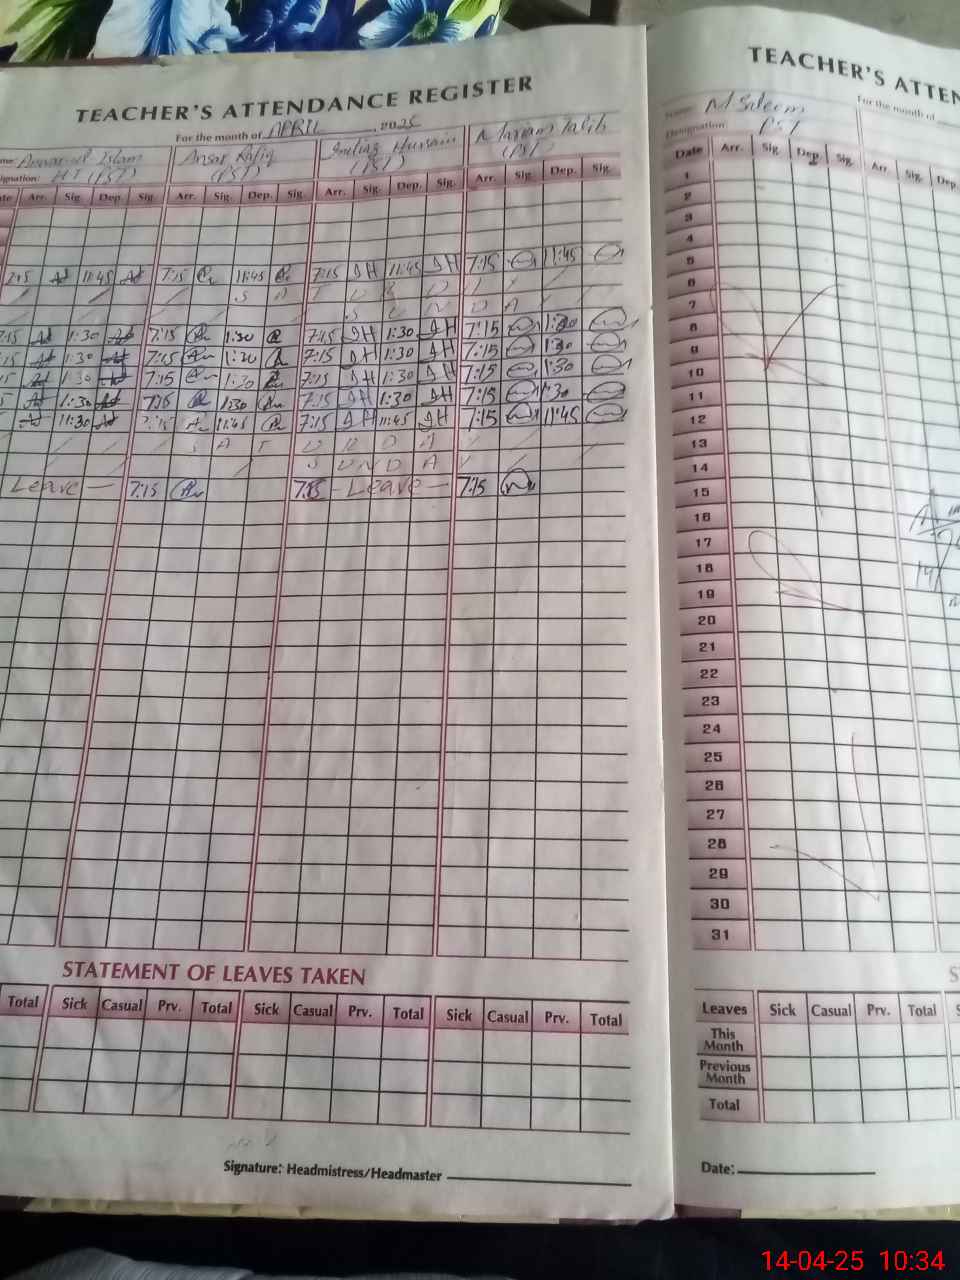 TEACHER'S ATTENDANCE REGISTER
For the month of APRIL, 2025
Islam Ansar Rafiq Imtiaz Hussain Talib
HT (PST) (PST) (PST) (PST)
Arr. Sig. Dep. Sig. Arr. Sig. Dep. Sig. Arr. Sig. Dep. Sig. Arr. Sig. Dep. Sig.
7:15 11:45 7:15 11:45 7:15 IH 11:45 IH 7:15 11:45
S A T U R D
S U N D A
7:15 1:30 7:15 1:30 7:15 IH 1:30 IH 7:15 1:30
:15 1:30 7:15 1:30 7:15 IH 1:30 IH 7:15 1:30
5 1:30 7:15 1:30 7:15 IH 1:30 IH 7:15 1:30
5 1:30 7:15 1:30 7:15 IH 1:30 IH 7:15 1:30
11:30 7:15 11:45 7:15 IH 11:45 IH 7:15 11:45
S A T U R D A Y
S U N D A Y
Leave — 7:15 - Leave — 7:15
STATEMENT OF LEAVES TAKEN
Total Sick Casual Prv. Total Sick Casual Prv. Total Sick Casual Prv. Total
Signature: Headmistress/Headmaster
TEACHER'S ATTEN
For the month of
Name: M Saleem
Designation: PST
Date Arr. Sig. Dep. Sig. Arr. Sig. Dep.
1
2
3
4
5
6
7
8
9
10
11
12
13
14
15
16
17
18
19
20
21
22
23
24
25
26
27
28
29
30
31
S
Leaves Sick Casual Prv. Total
This Month
Previous Month
Total
Date:
14-04-25 10:34